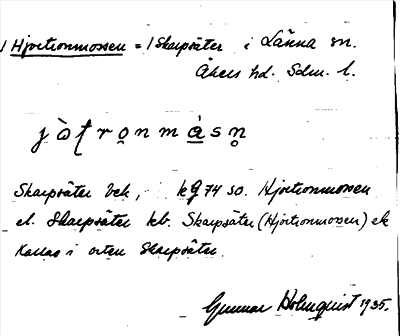 / Hjortronmossen = / Skarpsäter i Länna sn.
Åkers hd. Sdm. l.
jòʈronmásn̥
Skarpsäter bek, kg 74 so. Hjortronmossen
el. Skarpsäter kb. Skarpsäter (Hjortronmossen) ek
Kallas i orten Skarpsäter.
Gunnar Holmquist 1935.